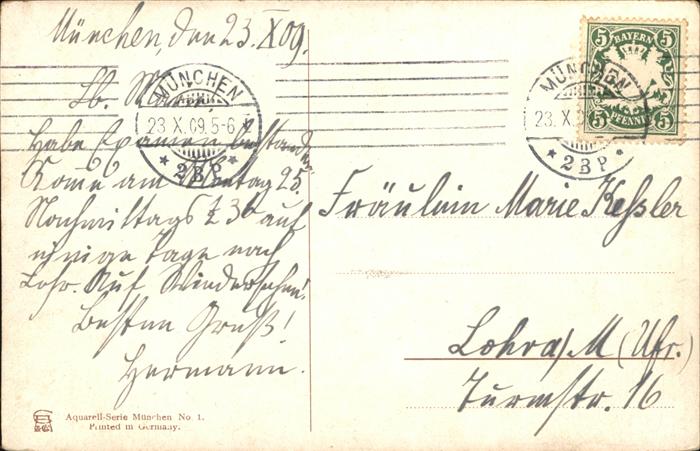 München, den 23.X.09.
Lb. Marie!
Habe Examen bestanden
Kome am Montag 25.
Nachmittags 2 36 auf
einige Tage nach
Lohr. Auf Wiedersehen!
Besten Gruß!
Hermann.
MÜNCHEN
23 X.09. 5-6 N
* 2 B P *
MÜNCHEN
23. X.
* 2 B P *
5 BAYERN 5
5 PFENNIG 5
Fräulein Marie Keßler
Lohr a/M (Ufr.)
Turmstr. 16
Aquarell-Serie München No. 1.
Printed in Germany.